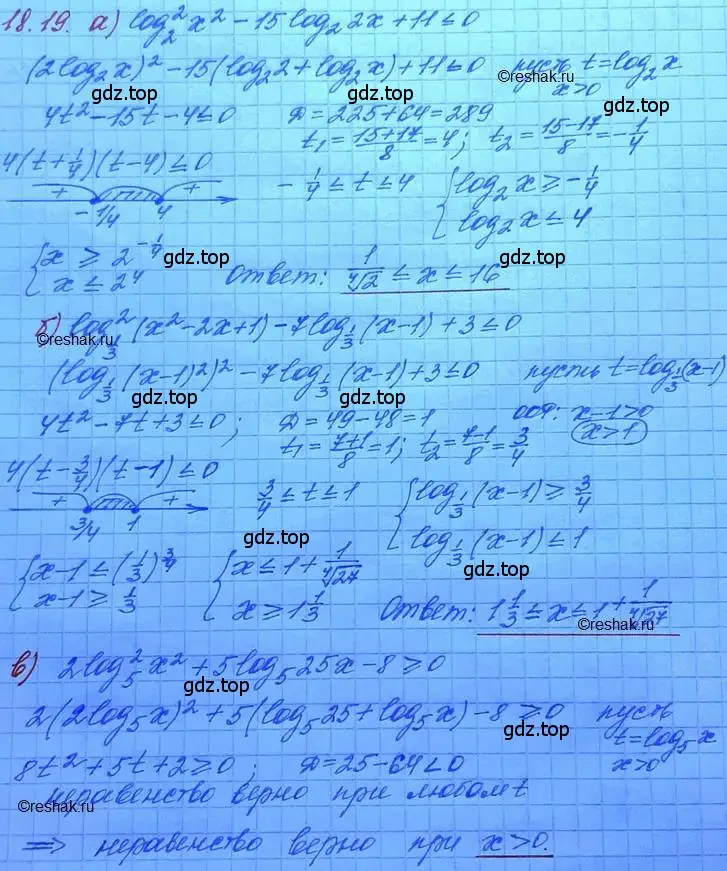 18.19. а) log₂² x² - 15 log₂ 2x + 11 ≤ 0
(2log₂x)² - 15(log₂2 + log₂x) + 11 ≤ 0 пусть t = log₂x
©reshak.ru
gdz.top gdz.top x>0 gdz.top
4t² - 15t - 4 ≤ 0 D = 225 + 64 = 289
t₁ = (15+17)/8 = 4; t₂ = (15-17)/8 = -1/4
4(t + 1/4)(t - 4) ≤ 0
+ + -1/4 ≤ t ≤ 4 { log₂x ≥ -1/4
-1/4 4 log₂x ≤ 4
{ x ≥ 2^(-1/4)
x ≤ 2⁴ gdz.top Ответ: 1/⁴√2 ≤ x ≤ 16 gdz.top
б) log²_(1/3) (x² - 2x + 1) - 7log_(1/3) (x-1) + 3 ≤ 0
©reshak.ru
(log_(1/3) (x-1)²)² - 7log_(1/3) (x-1) + 3 ≤ 0 пусть t = log_(1/3) (x-1)
gdz.top gdz.top gdz.top
4t² - 7t + 3 ≤ 0; D = 49 - 48 = 1 ООФ: x-1>0
t₁ = (7+1)/8 = 1; t₂ = (7-1)/8 = 3/4 x>1
4(t - 3/4)(t - 1) ≤ 0
+ + 3/4 ≤ t ≤ 1 { log_(1/3) (x-1) ≥ 3/4
3/4 1 gdz.top log_(1/3) (x-1) ≤ 1 gdz.top
{ x-1 ≤ (1/3)^(3/4) { x ≤ 1 + 1/⁴√27
x-1 ≥ 1/3 x ≥ 1 1/3 Ответ: 1 1/3 ≤ x ≤ 1 + 1/⁴√27
©reshak.ru
в) 2log₅² x² + 5log₅ 25x - 8 ≥ 0
gdz.top
2(2log₅x)² + 5(log₅25 + log₅x) - 8 ≥ 0 пусть
gdz.top gdz.top t = log₅x
8t² + 5t + 2 ≥ 0; D = 25 - 64 < 0 x>0
©reshak.ru
неравенство верно при любом t
⟹ неравенство верно при x>0.